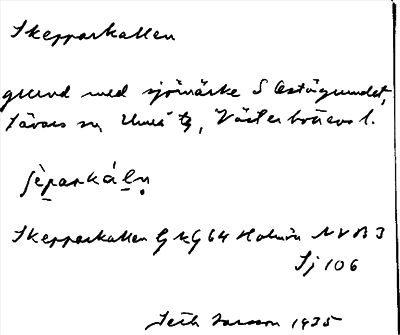 Skepparkallen
grund med sjömärke S Ostögrundet,
Sävars sn Umeå tg, Västerbottens l.
Skepparkallen GkG 64 Holmön NV B 3
Sj 106
Seth Larsson 1935